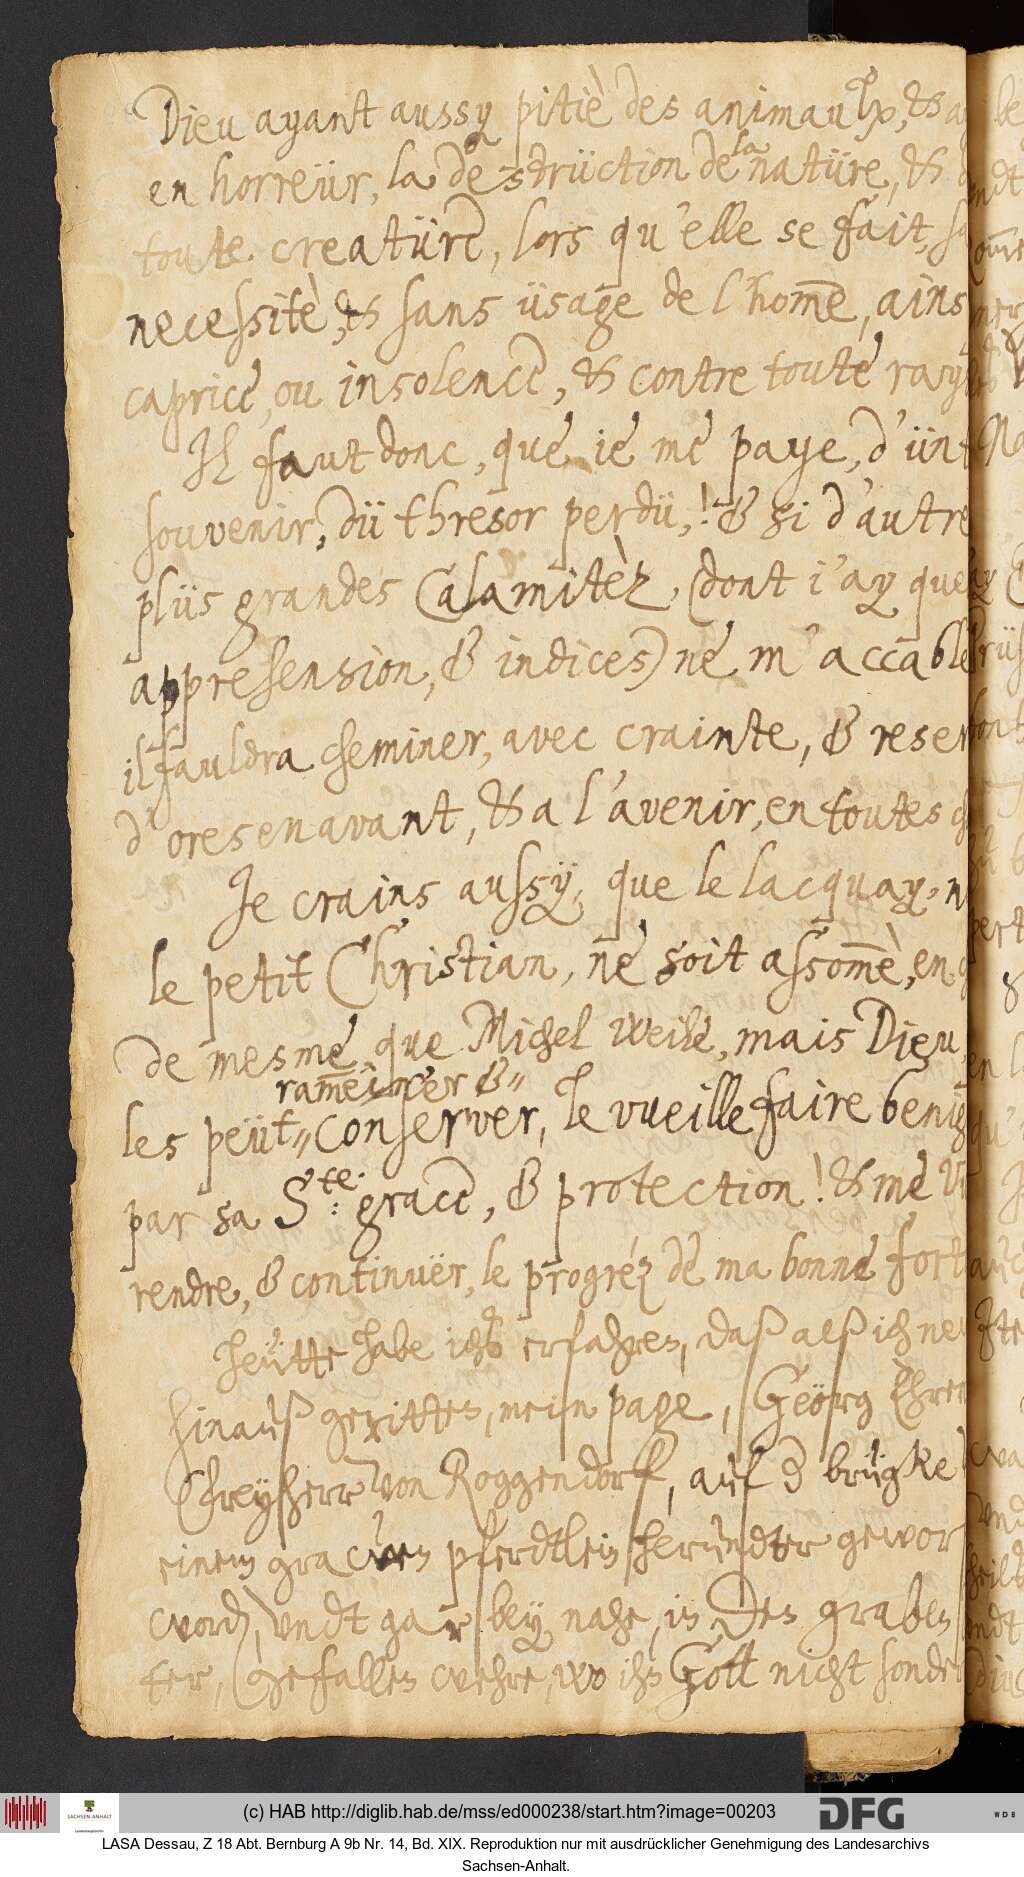 Dieu ayant aussy pitiè des animaulx, &
en horreür, la destrüction de la natüre, &
toute creatüre, lors qu'elle se fait,
necessitè, & sans üsage de l'home, ains
caprice, ou insolence, & contre toute
Il faut donc, que ie me paye, d'ün
souvenir, dü thresor perdü,! & si d'autre
plüs grandes Calamitèz, (dont i'ay
apprehension, & indices) ne m'accable
il fauldra cheminer, avec crainte, &
d'oresenavant, & a l'avenir, en toutes
Je crains aussÿ, que le lacquay,
le petit Christian, ne soit assomè, en
de mesme, que Michel weile, mais Dieu,
ramener &
les peüt conserver, Je le vueille faire
par sa Ste: grace, & protection! & me
rendre, & continuër, le progréz de ma bonne
heütte habe ichs erfahren, daß alß ich
hinauß geritten, mein page, Geörg
Freyherr von Roggendorf, auf d brügke
einem grawen pferdtlein herundter
word, undt gar bey nahe, in den graben
ter, gefallen wehre, wo ihn Gott nicht
(c) HAB http://diglib.hab.de/mss/ed000238/start.htm?image=00203
SACHSEN-ANHALT
DFG
WDB
LASA Dessau, Z 18 Abt. Bernburg A 9b Nr. 14, Bd. XIX. Reproduktion nur mit ausdrücklicher Genehmigung des Landesarchivs
Sachsen-Anhalt.